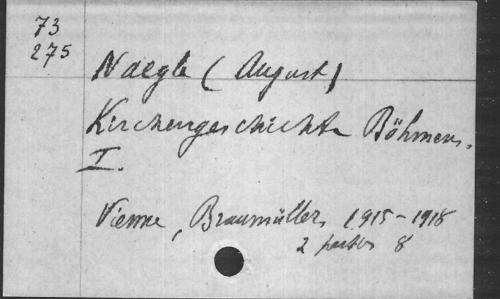 73
275
Naegle (August)
Kirchengeschichte Böhmens.
I.
Vienne, Braumüller, 1915-1918
2 parties 8